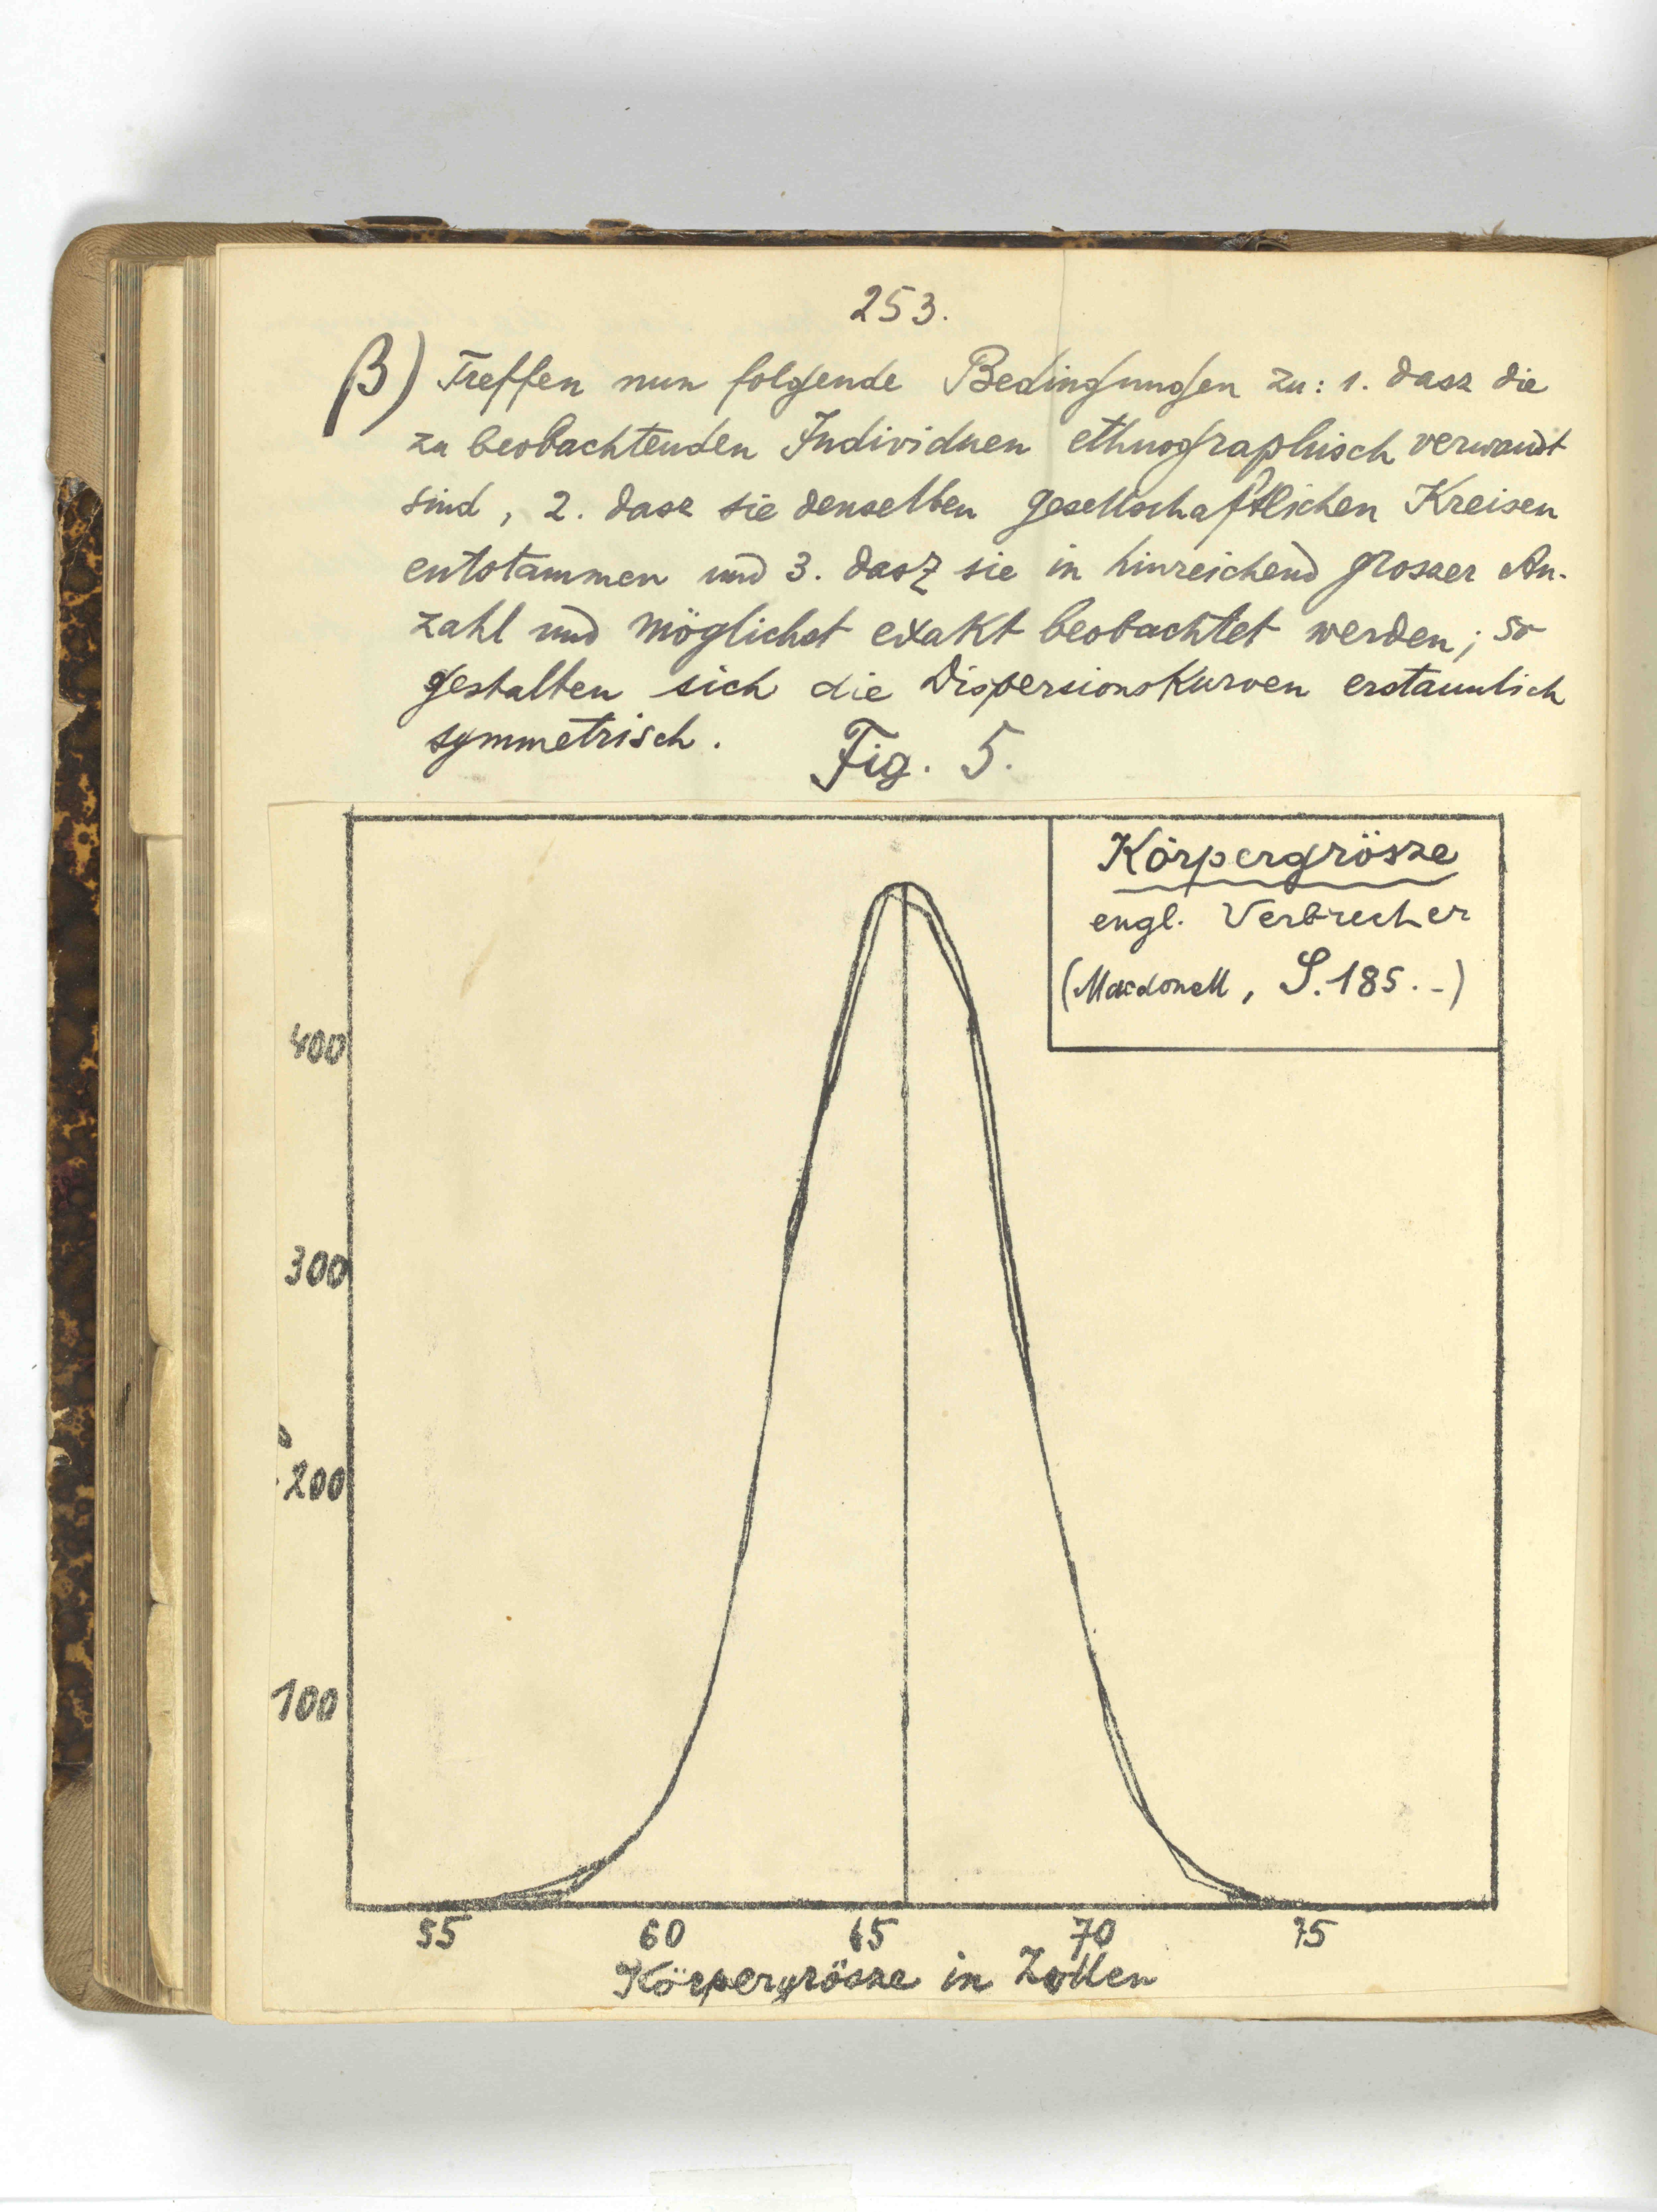 253.
β) Treffen nun folgende Bedingungen zu: 1. dasz die
zu beobachtenden Individuen ethnographisch verwandt
sind, 2. dasz sie denselben gesellschaftlichen Kreisen
entstammen und 3. dasz sie in hinreichend grosser An-
zahl und möglichst exakt beobachtet werden; so
gestalten sich die Dispersionskurven erstaunlich
symmetrisch.
Fig. 5.
Körpergrösze
engl. Verbrecher
(Macdonell, S. 185. -)
400
300
200
100
55 60 65 70 75
Körpergrösze in Zollen